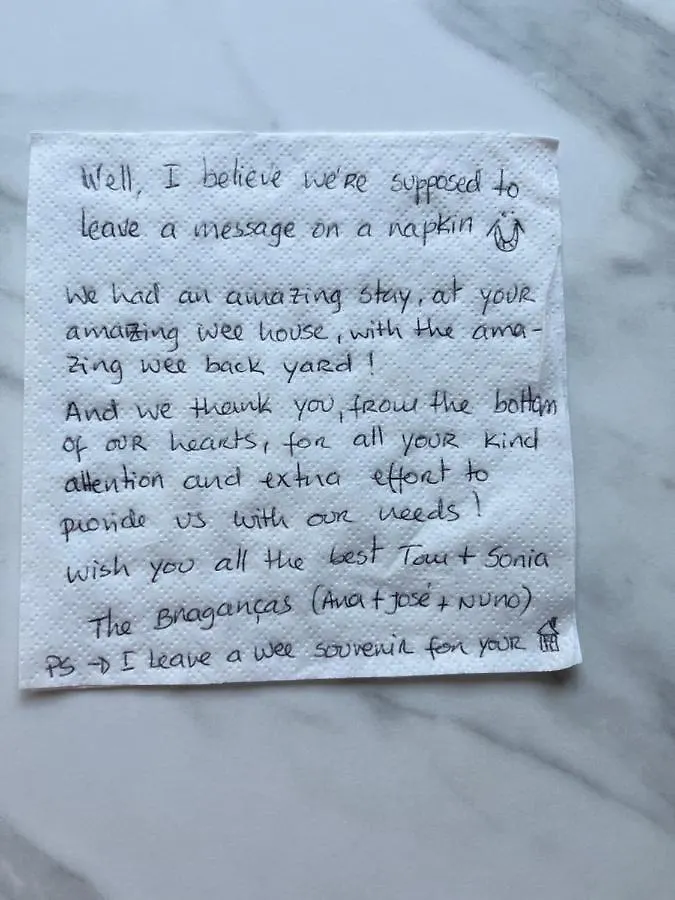 Well, I believe we're supposed to
leave a message on a napkin
We had an amazing stay, at your
amazing wee house, with the ama-
zing wee back yard!
And we thank you, from the bottom
of our hearts, for all your kind
attention and extra effort to
provide us with our needs!
Wish you all the best Tom + Sonia
The Braganças (Ana + José + Nuno)
PS → I leave a wee souvenir for your